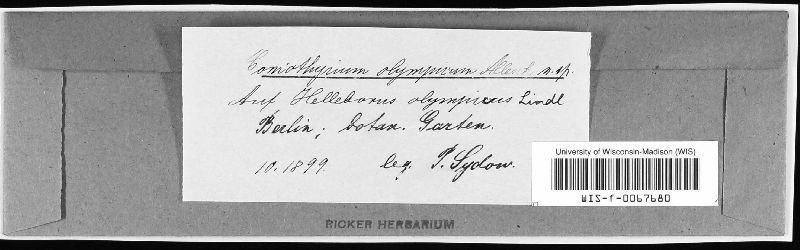 Coniothyrium olympicum Allesch. n. sp.
Auf Helleborus olympicus Lindl
Berlin; botan. Garten.
10.1899. leg. P. Sydow.
University of Wisconsin-Madison (WIS)
WIS-f-0067680
RICKER HERBARIUM